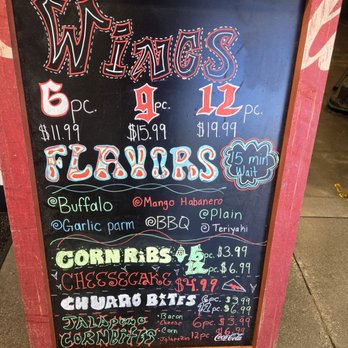 Wings
6 pc. 9 pc. 12 pc.
$11.99 $15.99 $19.99
FLAVORS
15 min Wait
@Buffalo @Mango Habanero @Plain
@Garlic parm @BBQ @Teriyaki
CORN RIBS 6 pc. $3.99
12 pc. $6.99
CHEESECAKE $4.99
CHURRO BITES 6 pc. $3.99
12 pc. $6.99
JALAPEÑO CORNBITES
• Bacon
• Cheese
• Corn
• Jalapeños
6 pc.
12 pc.
Coca-Cola